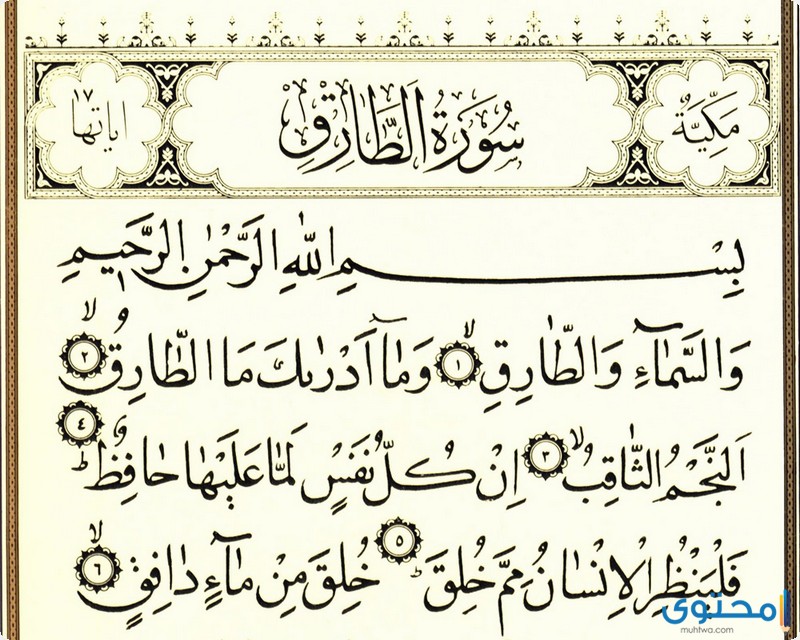 مَكِّيَّةٌ
سُورَةُ الطَّارِقِ
١٧ اياتها
بِسْمِ اللّٰهِ الرَّحْمٰنِ الرَّحِيمِ
وَالسَّمَٓاءِ وَالطَّارِقِۙ ﴿١﴾ وَمَٓا اَدْرٰيكَ مَا الطَّارِقُۙ ﴿٢﴾
اَلنَّجْمُ الثَّاقِبُۙ ﴿٣﴾ اِنْ كُلُّ نَفْسٍ لَمَّا عَلَيْهَا حَافِظٌۜ ﴿٤﴾
فَلْيَنْظُرِ الْاِنْسَانُ مِمَّ خُلِقَۜ ﴿٥﴾ خُلِقَ مِنْ مَٓاءٍ دَافِقٍۙ ﴿٦﴾
محتوى
muhtwa.com